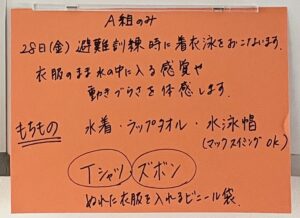 A組のみ
28日(金) 避難訓練時に着衣泳をおこないます。
衣服のまま水の中に入る感覚や
動きづらさを体感します。
もちもの 水着・ラップタオル・水泳帽
(マックスイミングOK)
Tシャツ・ズボン
ぬれた衣服を入れるビニール袋